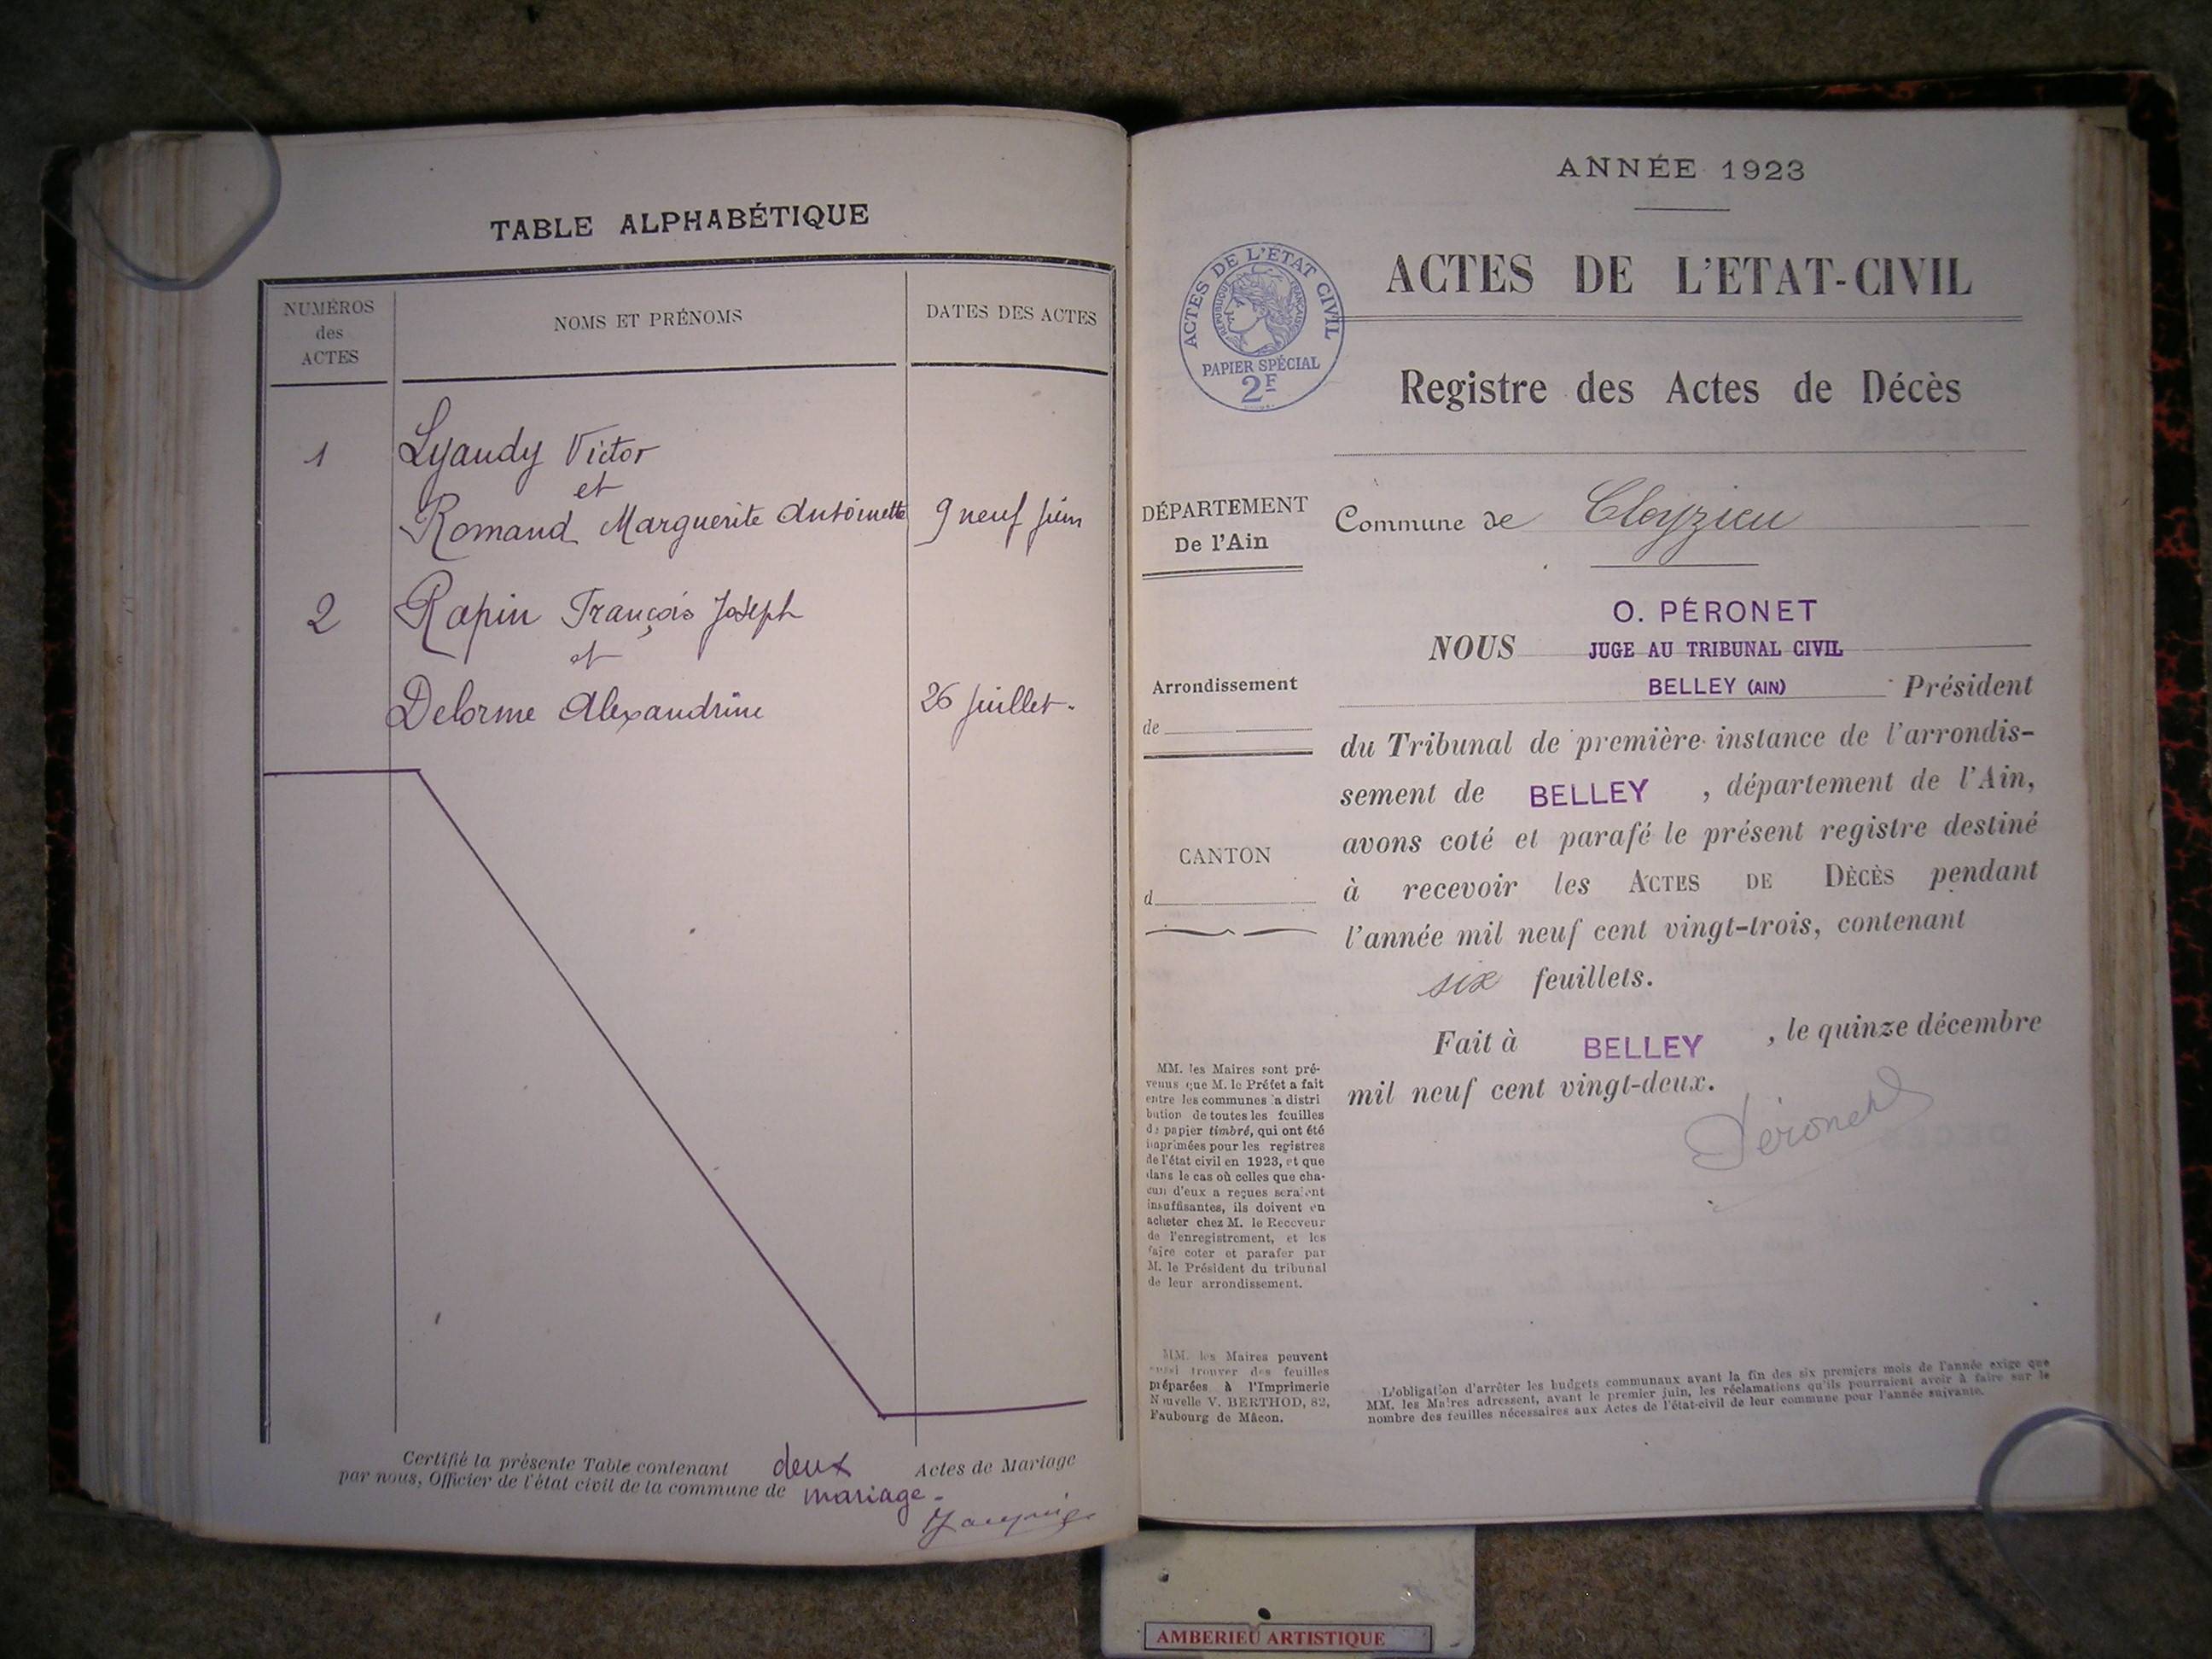 TABLE ALPHABÉTIQUE
NUMÉROS
des
ACTES
NOMS ET PRÉNOMS
DATES DES ACTES
1 Lyaudy Victor
et
Romand Marguerite Antoinette 9 neuf juin
2 Rapin François Joseph
et
Delorme Alexandrine 26 juillet.
Certifié la présente Table contenant deux Actes de Mariage
par nous, Officier de l'état civil de la commune de mariage.
ANNÉE 1923
ACTES DE L'ETAT-CIVIL
ACTES DE L'ETAT CIVIL
REPUBLIQUE FRANÇAISE
PAPIER SPÉCIAL
2F
Registre des Actes de Décès
DÉPARTEMENT
De l'Ain
Arrondissement
de
CANTON
d
Commune de Cleyzieu
O. PÉRONET
NOUS JUGE AU TRIBUNAL CIVIL
BELLEY (AIN) Président
du Tribunal de première instance de l'arrondis-
sement de BELLEY , département de l'Ain,
avons coté et parafé le présent registre destiné
à recevoir les ACTES DE DÉCÈS pendant
l'année mil neuf cent vingt-trois, contenant
six feuillets.
Fait à BELLEY , le quinze décembre
mil neuf cent vingt-deux.
Péronet
MM. les Maires sont pré-
venus que M. le Préfet a fait
entre les communes la distri
bution de toutes les feuilles
de papier timbré, qui ont été
imprimées pour les registres
de l'état civil en 1923, et que
dans le cas où celles que cha-
cun d'eux a reçues seraient
insuffisantes, ils doivent en
acheter chez M. le Receveur
de l'enregistrement, et les
faire coter et parafer par
M. le Président du tribunal
de leur arrondissement.
MM. les Maires peuvent
aussi trouver des feuilles
préparées à l'Imprimerie
Nouvelle V. BERTHOD, 82,
Faubourg de Mâcon.
L'obligation d'arrêter les budgets communaux avant la fin des six premiers mois de l'année exige que
MM. les Maires adressent, avant le premier juin, les réclamations qu'ils pourraient avoir à faire sur le
nombre des feuilles nécessaires aux Actes de l'état-civil de leur commune pour l'année suivante.
AMBERIEU ARTISTIQUE